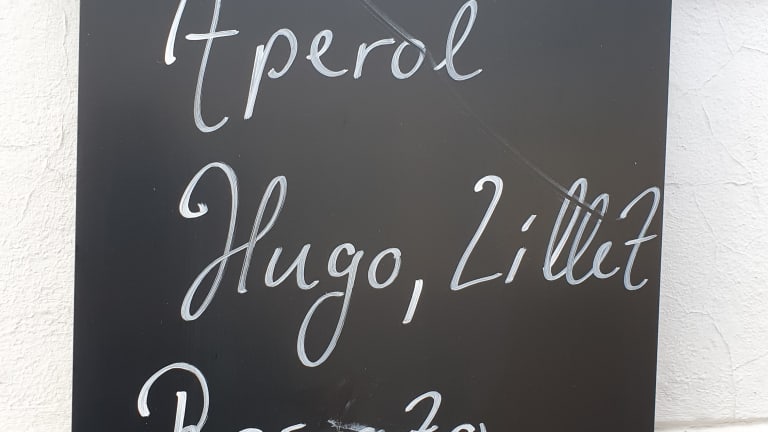 Aperol
Hugo, Lillet